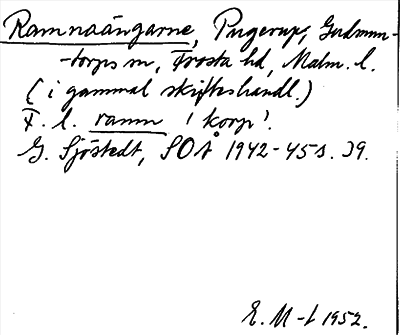 Ramnaängarne, Pugerup, Gudmun-
-torps sn, Frosta hd, Malm. l.
(i gammal skifteshandl.)
F. l. ramn 'korp'.
G. Sjöstedt, SOÅ 1942-45 s. 39.
E. M-t 1952.